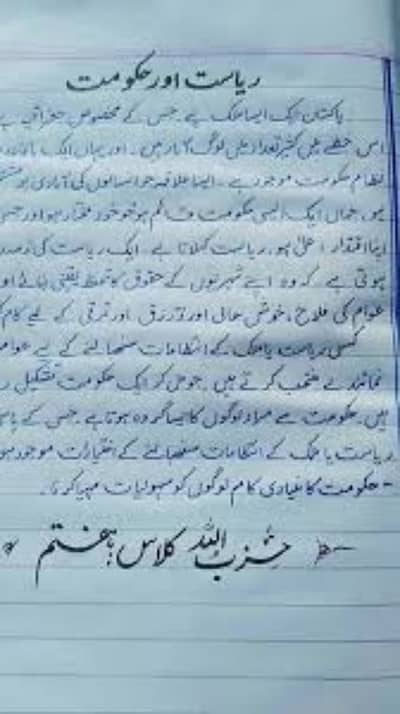 ریاست اور حکومت
پاکستان ایک ایسا ملک ہے جس کے مخصوص جغرافیہ ہے
اس خطے میں کثیر تعداد میں لوگ آباد ہیں۔ اور یہاں ایک
نظام حکومت موجود ہے۔ ایسا علاقہ جو انسانوں کی آبادی پر
ہو، جہاں ایک ایسی حکومت قائم ہو جو خود مختار ہو اور جس
اپنا اقتدار اعلیٰ ہو، ریاست کہلاتا ہے۔ ایک ریاست کی
ہوتی ہے کہ وہ اپنے شہریوں کے حقوق کا تحفظ یقینی بنائے او
عوام کی فلاح، خوش حالی اور ترقی کے لیے کام
کسی ریاست یا ملک کے انتظامات سنبھالنے کے لیے عوام
نمائندے منتخب کرتے ہیں۔ جو مل کر ایک حکومت تشکیل
ہیں۔ حکومت سے مراد لوگوں کا ایسا گروہ ہوتا ہے۔ جس کے پاس
ریاست یا ملک کے انتظامات سنبھالنے کے اختیارات موجود ہو
- حکومت کا بنیادی کام لوگوں کو سہولیات مہیا کرنا۔
حزب اللہ کلاس: ہفتم